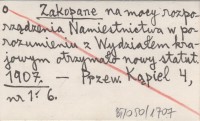 Zakopane na mocy rozpo-
rządzenia Namiestnictwa w po-
rozumieniu z Wydziałem kra-
jowym otrzymało nowy statut
1907. — Przew. Kąpiel 4,
nr 1: 6.
1907